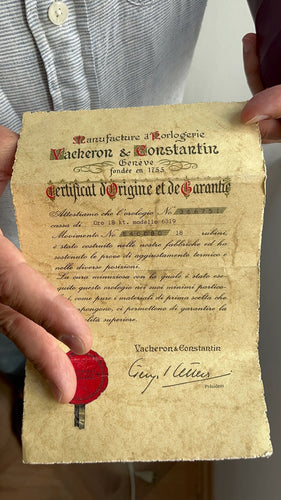 Manufacture d'Horlogerie
Vacheron & Constantin
Genève
fondée en 1755
Certificat d'Origine et de Garantie
Attestiamo che l'orologio No
cassa di Oro 18 kt. modello 6019
Movimento No 18 rubini
è stato costruito nelle nostre fabbriche ed ha
sostenuto le prove di aggiustamento termico e
nelle diverse posizioni.
La cura minuziosa con la quale è stato ese-
guito questo orologio nei suoi minimi partico-
come pure i materiali di prima scelta che
compongono, ci permettono di garantire la
qualità superiore.
Vacheron & Constantin
Président